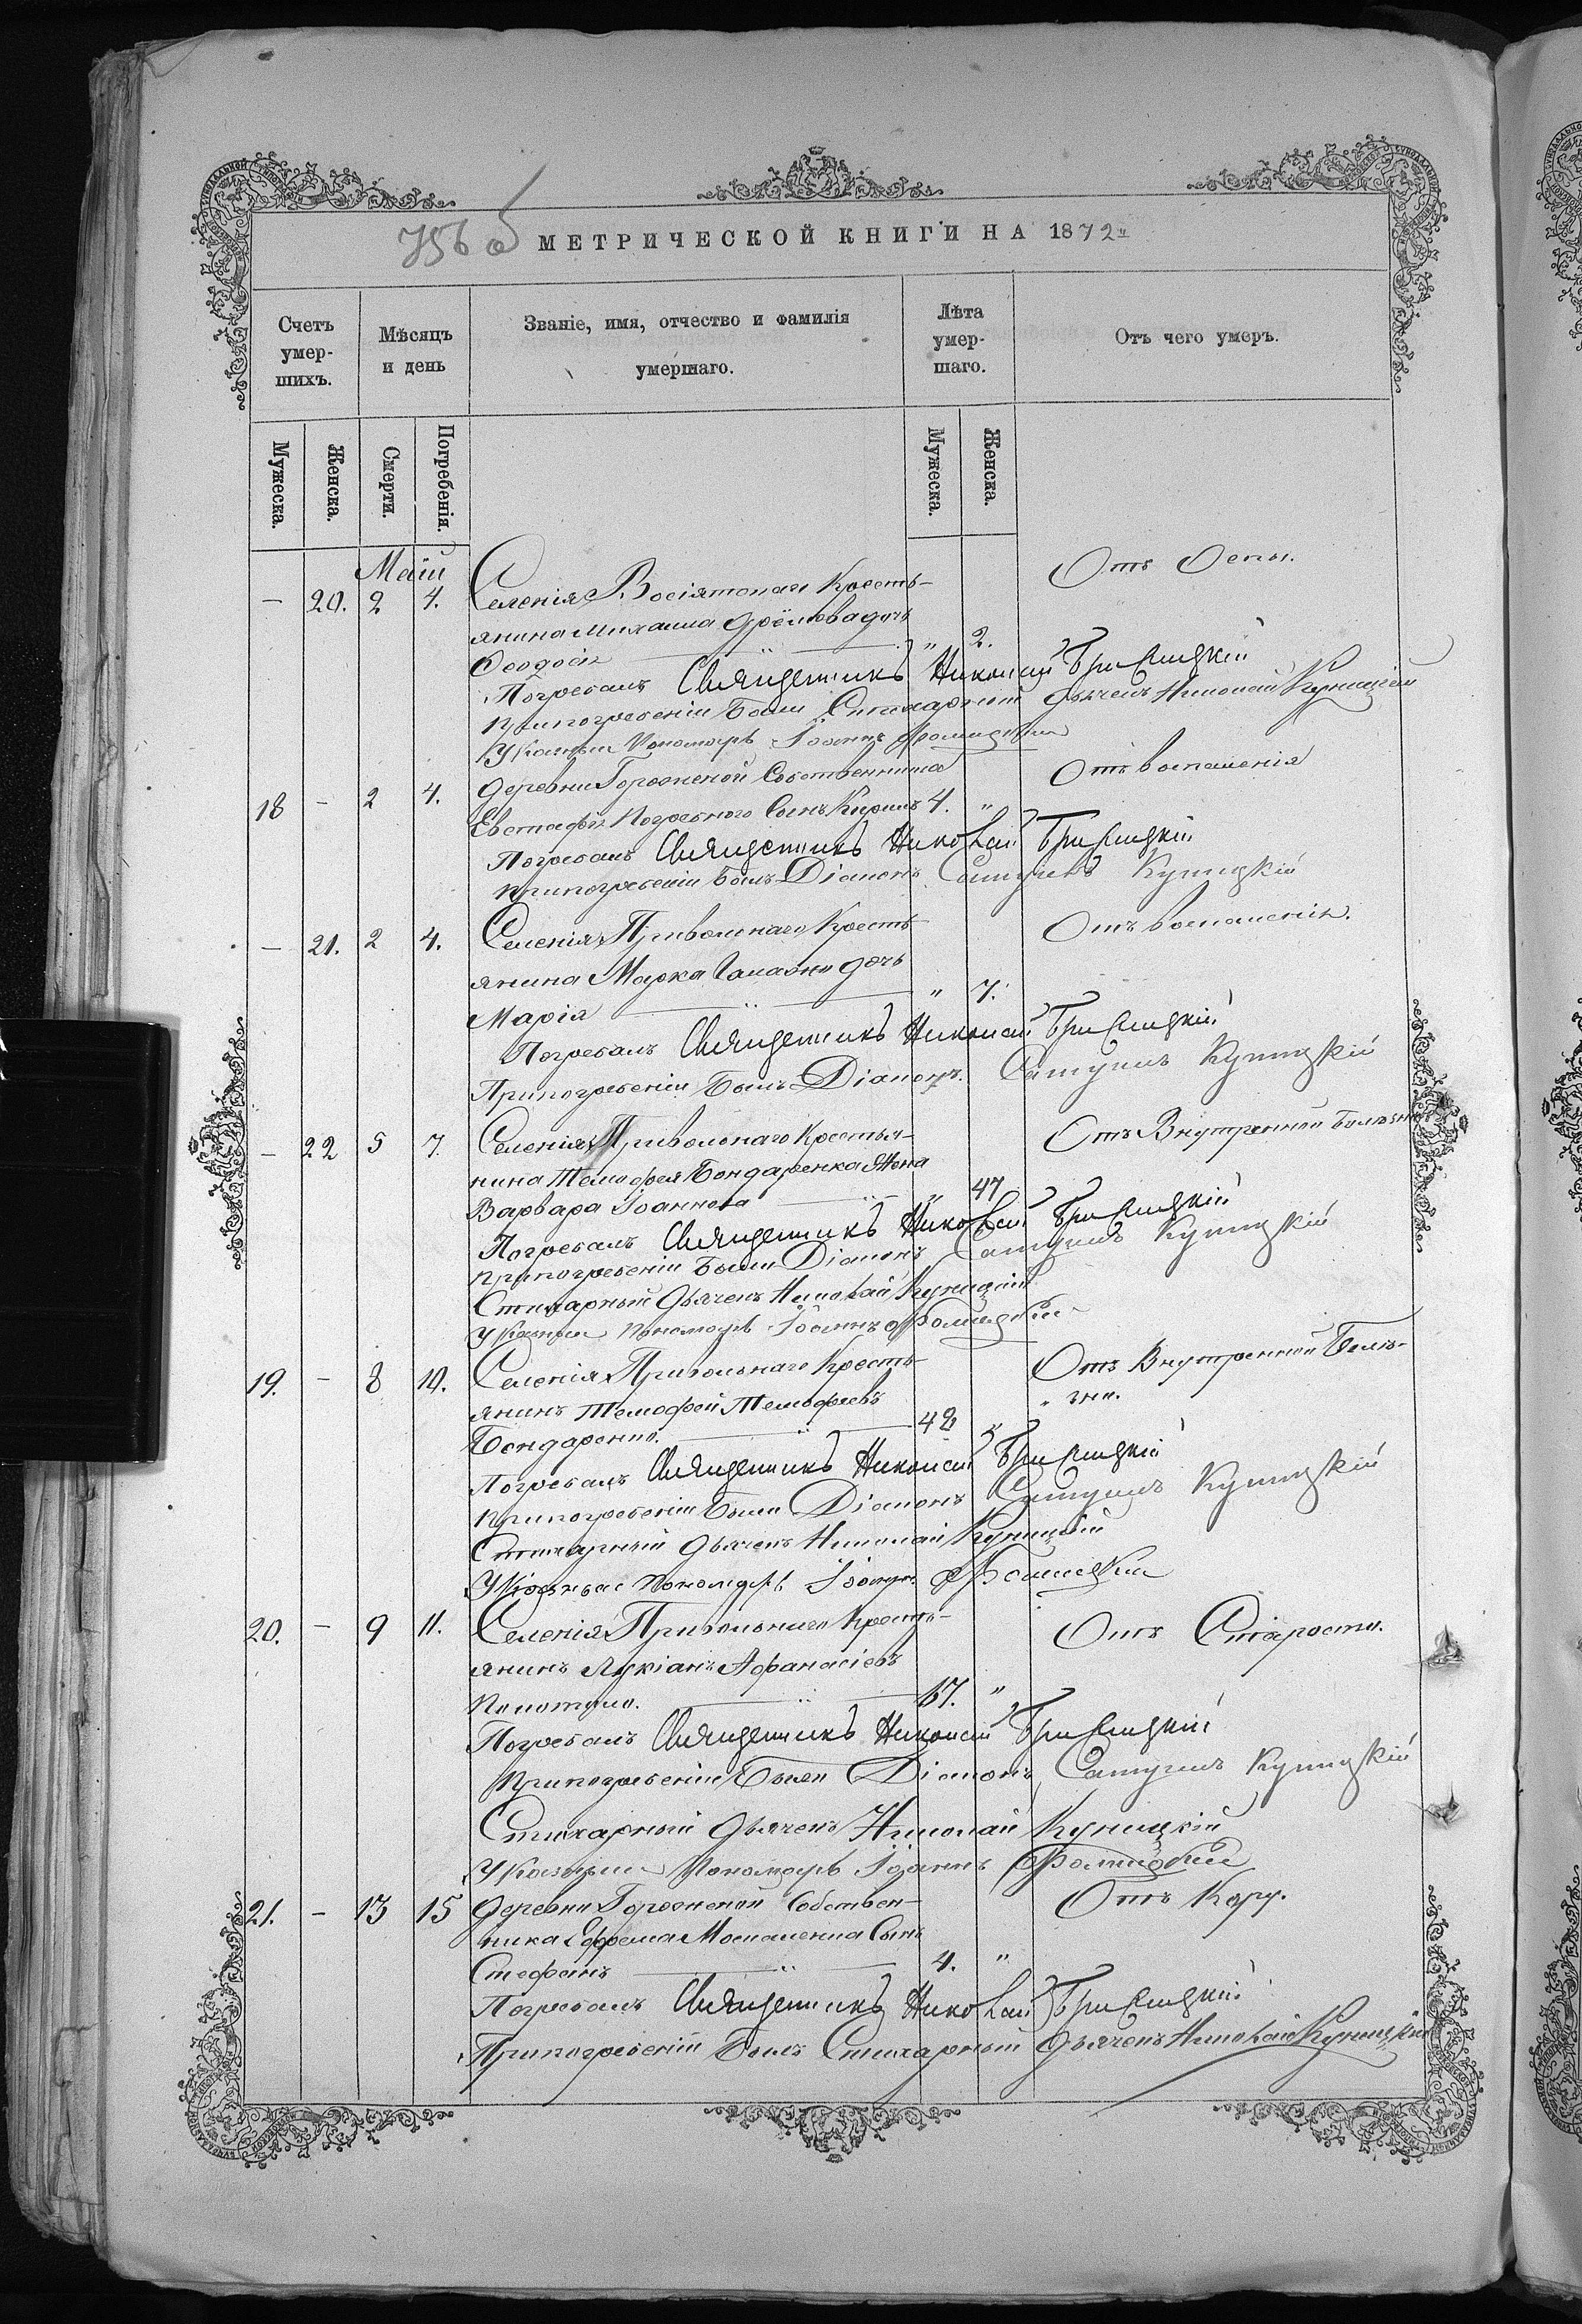 756 об
МЕТРИЧЕСКОЙ КНИГИ НА 1872
Счетъ умер-шихъ.
Мѣсяцъ и день
Званіе, имя, отчество и фамилія умершаго.
Лѣта умер-шаго.
Отъ чего умеръ.
Мужеска.
Женска.
Смерти.
Погребенія.
Мужеска.
Женска.
Май
— 20. 2 4. Селенія Восіятскаго Кресть- Отъ Оспы.
янина Михаила дочь
Ѳеодосія — " 2.
Погребалъ Священникъ Николай
При погребеніи были Стихарный Дьячекъ Николай Куницкій
Указный Пономарь Іоаннъ
18 - 2 4. Деревни Горожаной Собственника Отъ воспаленія
Евстафія Погребного Сынъ Кирилъ 4. "
Погребалъ Священникъ Николай
При погребеніи былъ Діаконъ Самуилъ Куницкій
— 21. 2 4. Селенія Привольнаго Кресть- Отъ воспаленія.
янина Марка дочь
Марія — " 7.
Погребалъ Священникъ Николай
При погребеніи былъ Діаконъ Самуилъ Куницкій
— 22 5 7. Селенія Привольнаго Крестья- Отъ Внутренной болѣзни
нина Тимофея Бондаренка Жена
Варвара Іоаннова — " 47
Погребалъ Священникъ Николай
При погребеніи были Діаконъ Самуилъ Куницкій
Стихарный Дьячекъ Николай Куницкій
Указный Пономарь Іоаннъ
19. - 8 10. Селенія Привольнаго Кресть- Отъ Внутренной Болѣ-
янинъ Тимофей Тимофеевъ зни.
Бондаренко. — 48 "
Погребалъ Священникъ Николай
При погребеніи были Діаконъ Самуилъ Куницкій
Стихарный Дьячекъ Николай Куницкій
Указный Пономарь Іоаннъ
20. - 9 11. Селенія Привольнаго Кресть- Отъ Старости.
янинъ Лукіанъ Афанасіевъ
— 67. "
Погребалъ Священникъ Николай
При погребеніи были Діаконъ Самуилъ Куницкій
Стихарный Дьячекъ Николай Куницкій
Указный Пономарь Іоаннъ
21. - 13 15 Деревни Горожаной Собствен- Отъ Кору.
ника Ефрема Сынъ
Стефанъ — 4. "
Погребалъ Священникъ Николай
При погребеніи былъ Стихарный Дьячекъ Николай Куницкій